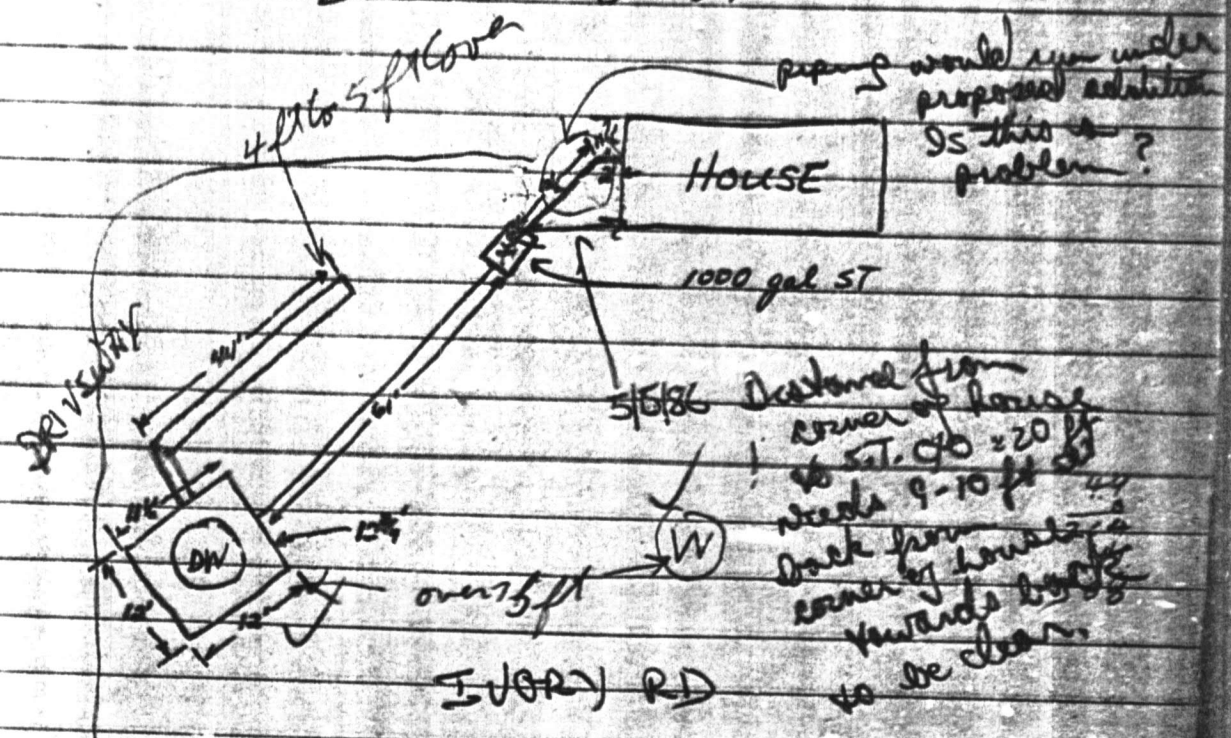 4 ft to 5 ft Cover
piping would run under
proposed addition
Is this a
problem?
HOUSE
1000 gal ST
DRIVEWAY
44'
61'
5/5/86 Distance from
corner of house
to S.T. C/O = 20 ft
needs 9-10 ft
back from
corner of house
towards
to be clear.
DW
12'
12'
over 75 ft
W
IVORY RD